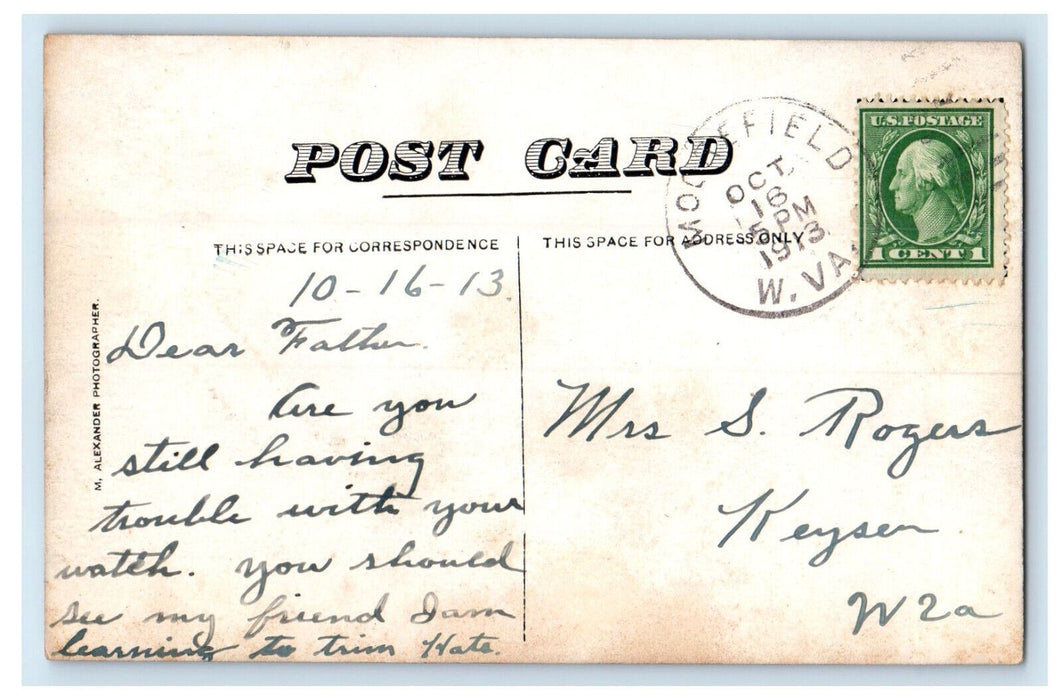 POST CARD
MOOREFIELD
OCT.
16
5 PM
1913
W. VA.
U.S. POSTAGE
1 CENT 1
THIS SPACE FOR CORRESPONDENCE
THIS SPACE FOR ADDRESS ONLY
M. ALEXANDER PHOTOGRAPHER.
10-16-13.
Dear Father.
Are you
still having
trouble with your
watch. You should
see my friend I am
learning to trim Hats.
Mrs S. Rogers
Keyser
W Va